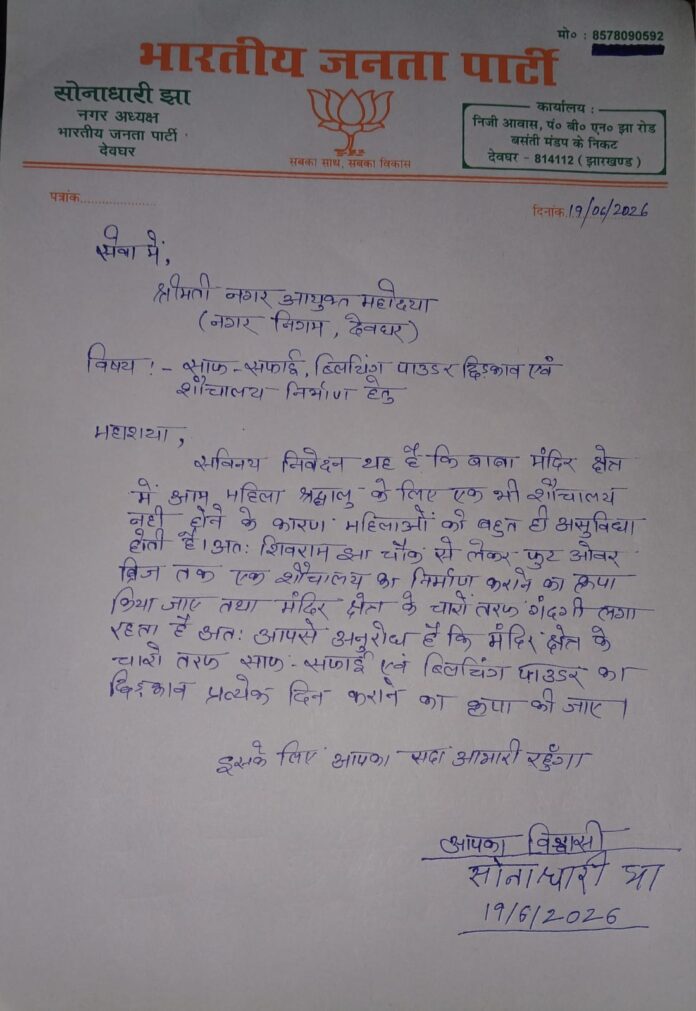 मो० : 8578090592
भारतीय जनता पार्टी
सोनाधारी झा
नगर अध्यक्ष
भारतीय जनता पार्टी
देवघर
सबका साथ, सबका विकास
कार्यालय :
निजी आवास, पं० बी० एन० झा रोड
बसंती मंडप के निकट
देवघर - 814112 ( झारखण्ड )
पत्रांक....................
दिनांक 19/06/2026
सेवा में,
श्रीमती नगर आयुक्त महोदया
(नगर निगम, देवघर)
विषय :- साफ-सफाई, ब्लिचिंग पाउडर छिड़काव एवं
शौचालय निर्माण हेतु
महाशया,
सविनय निवेदन यह है कि बाबा मंदिर क्षेत्र
में आम महिला श्रद्धालु के लिए एक भी शौचालय
नही होने के कारण महिलाओं को बहुत ही असुविधा
होती है। अतः शिवराम झा चौक से लेकर फुट ओवर
ब्रिज तक एक शौचालय का निर्माण कराने का कृपा
किया जाए तथा मंदिर क्षेत्र के चारों तरफ गंदगी लगा
रहता है अतः आपसे अनुरोध है कि मंदिर क्षेत्र के
चारो तरफ साफ-सफाई एवं ब्लिचिंग पाउडर का
छिड़काव प्रत्येक दिन कराने का कृपा की जाए।
इसके लिए आपका सदा आभारी रहुँगा
आपका विश्वासी
सोनाधारी झा
19/6/2026